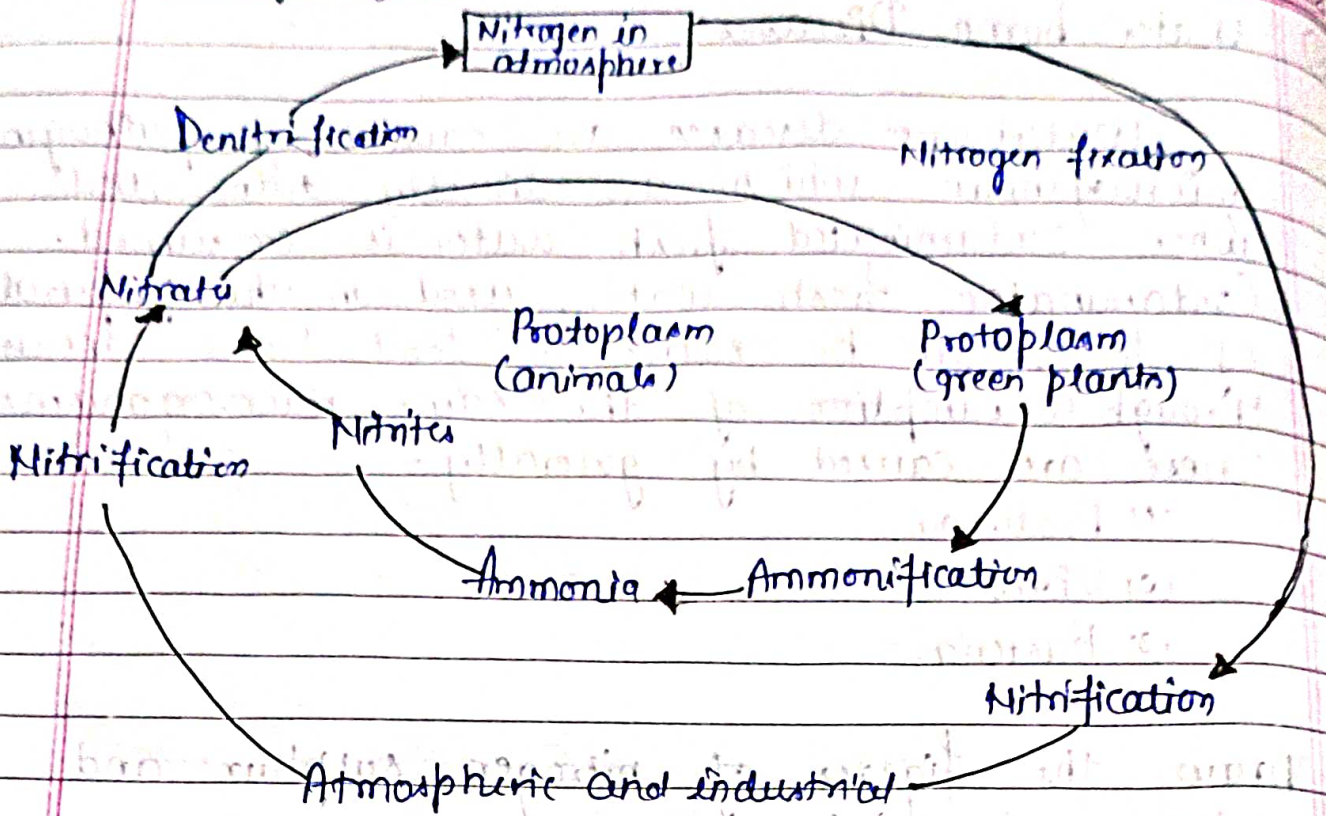 Nitrogen in
atmosphere
Denitrification
Nitrogen fixation
Nitrate
Protoplasm
(animals)
Protoplasm
(green plants)
Nitrites
Nitrification
Ammonia
Ammonification
Nitrification
Atmospheric and industrial